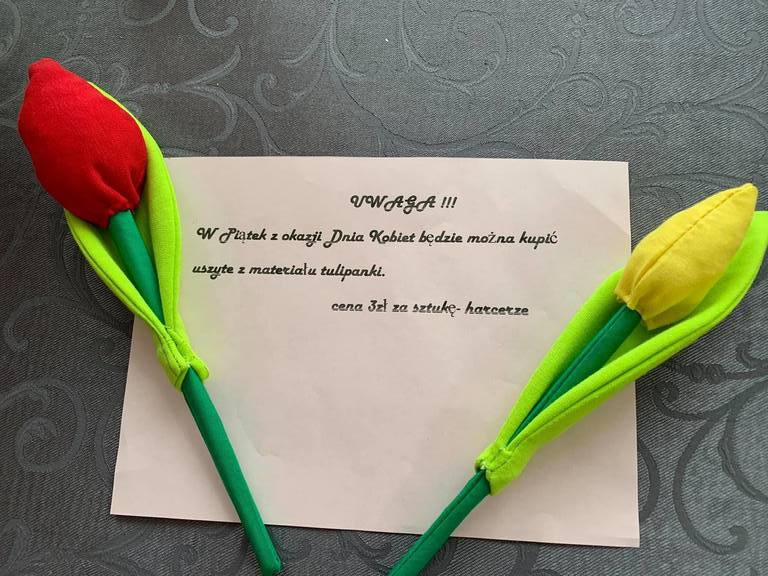 UWAGA !!!
W Piątek z okazji Dnia Kobiet będzie można kupić
uszyte z materiału tulipanki.
cena 3zł za sztukę- harcerze